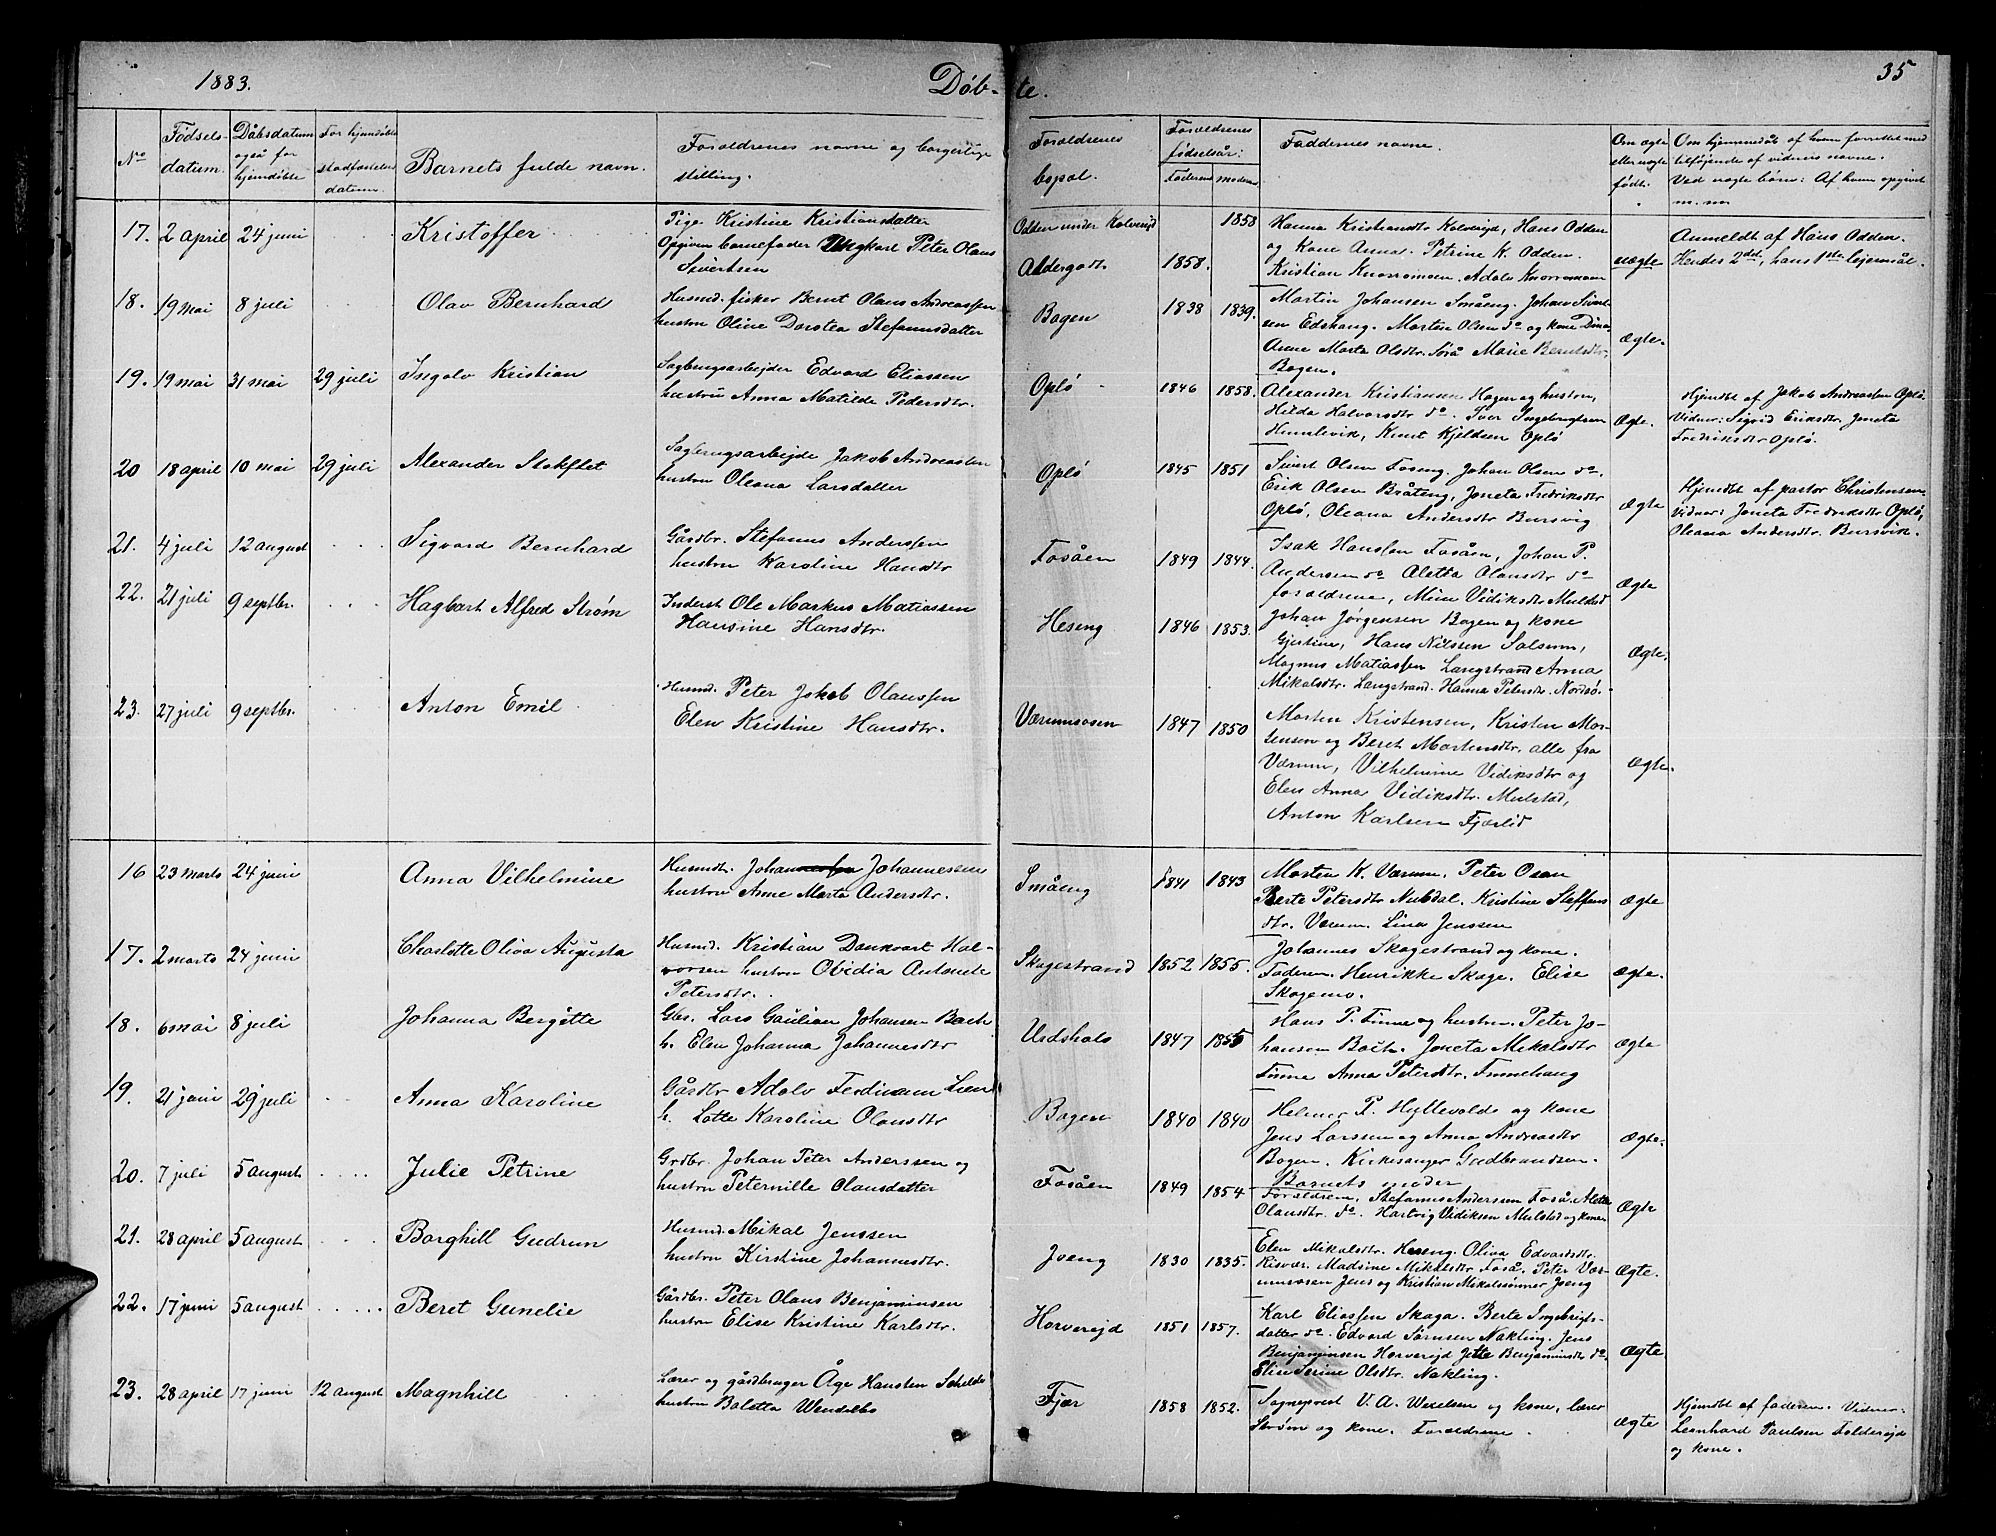 1883.
Døb-te.
35
No
Fødsels-datum.
Dåbsdatum også for hjemdøbte
For hjemdøbte stadfæstelses datum.
Barnets fulde navn.
Forældrenes navne og borgerlige stilling.
Forældrenes bopæl.
Forældrenes fødselsår:
Faderens
moderens
Faddernes navne.
Om ægte eller uægte født.
Om hjemmedåb af hvem forrettet med tilføjende af vidners navne.
Ved uægte børn: Af hvem opgivet m. m.
17. 2 april 24 juni Kristoffer
Pige Kristine Kristiansdatter
Opgiven barnefader Ungkarl Peter Olaus
Sivertsen
Odden under Kolvereid
Aldergodt.
1858
1858.
Hanna Kristiansdtr Kolvereid, Hans Odden
og Kone Anna. Petrine K. Odden.
Kristian Knorremoen, Adolv Knorremoen
uægte
Anmeldt af Hans Odden.
Hendes 2det, hans 1ste lejermål.
18. 19 mai 8 juli Olav Bernhard
Husmd. fisker Bernt Olaus Andreassen
hustru Oline Dorotea Stefanusdatter
Bogen 1838 1839.
Martin Johansen Småeng. Johan Sivert-
sen Edshaug. Morten Olsen do og kone Dina.
Anne Marta Olsdtr. Sørå Marie Berntsdtr.
Bogen.
Ægte.
19. 19 mai 31 mai 29 juli Ingolv Kristian
Sagbrugsarbejder Edvard Eliassen
hustru Anna Matilde Pedersdtr.
Oplø 1846 1858.
Alexander Kristiansen Hagen og hustru,
Hilda Halvorsdtr do. Iver Ingebrigtsen
Hemlevik, Knut Kjeldsen Oplø
Ægte.
Hjemdbt af Jakob Andreassen Oplø.
Vidner: Sigrid Eriksdtr, Joneta
Fredriksdtr Oplø.
20 18 april 10 mai 29 juli Alexander Stokflet
Sagbrugsarbejde Jakob Andreassen
hustru Oleana Larsdatter
Oplø 1845 1851
Sivert Olsen Foseng. Johan Olsen do.
Erik Olsen Bråteng, Joneta Fredriksdtr
Oplø, Oleana Andersdtr Bursvig
Ægte
Hjemdbt af pastor Christensen.
Vidner: Joneta Fredriksdtr Oplø,
Oleana Andersdtr. Bursvik.
21. 4 juli 12 august Sigvard Bernhard
Gårdbr. Stefanus Anderssen
hustru Karoline Hansdtr
Fosåen 1849 1844.
Isak Hanssen Fosåen, Johan P.
Andersen do Aletta Olausdtr. do
forældrene, Mina Vidiksdtr Mulstad
Ægte
22. 21 juli 9 septbr. Hagbart Alfred Strøm
Inderst Ole Markus Matiassen
Hansine Hansdtr.
Heseng 1846 1853.
Johan Jørgensen Bogen og kone
Gjertine, Hans Nilssen Solsum,
Magnus Matiassen Langstrand Anna
Mikalsdtr. Langstrand. Hanna Petersdtr. Nordsø.
Ægte.
23. 27 juli 9 septbr. Anton Emil
Husmd. Peter Jakob Olaussen
Elen Kristine Hansdtr.
Værumsosen 1847 1850
Morten Kristensen, Kristen Mor-
tensen og Beret Mortensdtr. alle fra
Værum, Vilhelmine Vidiksdtr og
Elen Anna Vidiksdtr. Mulstad,
Anton Karlsen Fjærlid
Ægte.
16 23 marts 24 juni Anna Vilhelmine
Husmdtr. Johannessen Johannessen
hustru Anne Marta Andersdtr.
Småeng 1841 1843
Morten K. Værum. Peter Osen
Berte Petersdtr Nubdal. Kristine Steffens
dtr. Værum. Lina Jenssen
Ægte
17. 2 marts 24 juni Charlotte Oliva Augusta
Husmd. Kristian Dankvart Hal-
vorsen hustru Ovidia Antonete
Petersdtr.
Skogestrand 1852 1855.
Johannes Skogestrand og kone.
Faderen. Henrikke Skage. Elise
Skogemo.
Ægte.
18. 6 mai 8 juli Johanna Bergitte
Gbr. Lars Gaulian Johansen Bach
h. Elen Johanna Johannesdtr
Urdshals 1847 1855
Hans P. Finne og hustru. Peter Jo-
hansen Bach. Joneta Mikalsdtr
Finne Anna Petersdtr. Finnehaug
Ægte
19. 21 juni 29 juli Anna Karoline
Gårdbr Adolv Ferdinam Lund
h. Lotte Karoline Olausdtr
Bogen 1840 1840
Helmer P. Hyllevold og kone
Jens Larssen og Anna Andreasdtr
Bogen. Kirkesanger Gudbrandsen.
Barnets moder
Ægte.
20. 7 juli 5 august Julie Petrine
Grdbr. Johan Peter Anderssen og
hustru Peternille Olausdatter
Fosåen 1849 1854
Forældrene, Stefanus Andersen Foså. Aletta
Olausdtr. do. Hartvig Vidiksen Mulstad og kone
Ægte
21. 28 april 5 august Borghill Gudrun
Husmd. Mikal Jenssen
hustru Kirstine Johannesdtr.
Joeng 1830 1835.
Elen Mikalsdtr. Heseng. Oliva Edvardsdtr.
Risvær. Madsine Mikalsdtr Foså. Peter Vær-
umsosen Jens og Kristian Mikalsønner Joeng
Ægte.
22. 17 juni 5 august Beret Gunelie
Gårdbr. Peter Olaus Benjaminsen
hustru Elise Kristine Karlsdtr.
Horvereid 1851 1857.
Karl Eliassen Skaga. Berte Ingebrigts-
datter do. Edvard Sørnsen Nakling. Jens
Benjaminsen Horvereid Jette Benjaminsdtr do.
Elise Serine Olsdtr. Nakling.
Ægte
23. 28 april 17 juni 12 august Magnhill
Lærer og gårdbruger Åge Hansten Schelde
hustru Boletta Wendelbo
Fjær 1858 1852.
Sogneprest V. A. Wexelsen og kone, lærer
Strøm og kone. Forældrene.
Ægte
Hjemdbt af faderen. Vidner:
Leonhard Paulsen Foldereid
og kone.